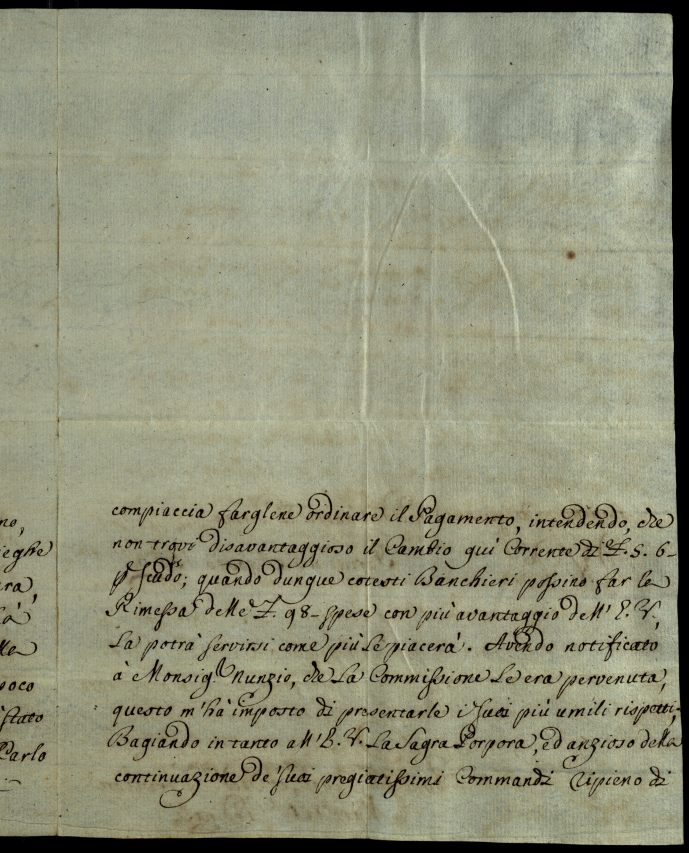 no,
ieghe
ra,
là
lla
poco
stato
Carlo
compiaccia farglene ordinare il Pagamento, intendendo, che
non trovi disavantaggioso il Cambio quì Corrente di F. 5. 6-
p scudo; quando dunque cotesti Banchieri possino far la
Rimessa delle F. 98- spese con più avantaggio dell' E. V.,
La potrà servirsi come più Le piacerà. Avendo notificato
à Monsigr Nunzio, che La Commissione Le era pervenuta,
questo m'hà imposto di presentarle i suoi più umili rispetti;
Bagiando in tanto all' E. V. La Sagra Porpora, ed anzioso della
continuazione de' suoi pregiatissimi Commandi ripieno di